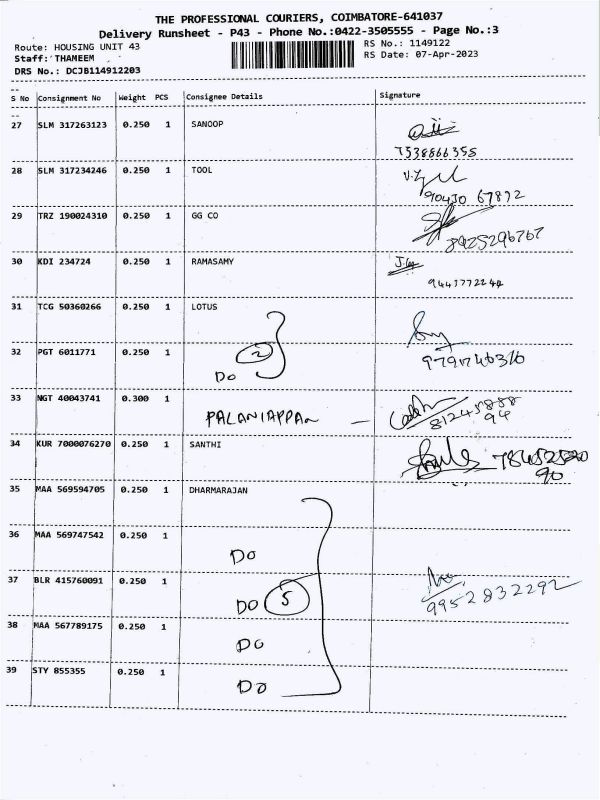 THE PROFESSIONAL COURIERS, COIMBATORE-641037
Delivery Runsheet - P43 - Phone No.:0422-3505555 - Page No.:3
Route: HOUSING UNIT 43
RS No.: 1149122
Staff: THAMEEM
RS Date: 07-Apr-2023
DRS No.: DCJB114912203
S No Consignment No Weight PCS Consignee Details Signature
27 SLM 317263123 0.250 1 SANOOP
7538866355
28 SLM 317234246 0.250 1 TOOL
90430 67892
29 TRZ 190024310 0.250 1 GG CO
8925296767
30 KDI 234724 0.250 1 RAMASAMY
9443772244
31 TCG 50360266 0.250 1 LOTUS
32 PGT 6011771 0.250 1 2
9791746376
DO
33 NGT 40043741 0.300 1
PALANIAPPAN -
81245888
94
34 KUR 7000076270 0.250 1 SANTHI
90
35 MAA 569594705 0.250 1 DHARMARAJAN
36 MAA 569747542 0.250 1
DO
37 BLR 415760091 0.250 1
DO 5
9952832292
38 MAA 567789175 0.250 1
DO
39 STY 855355 0.250 1
DO